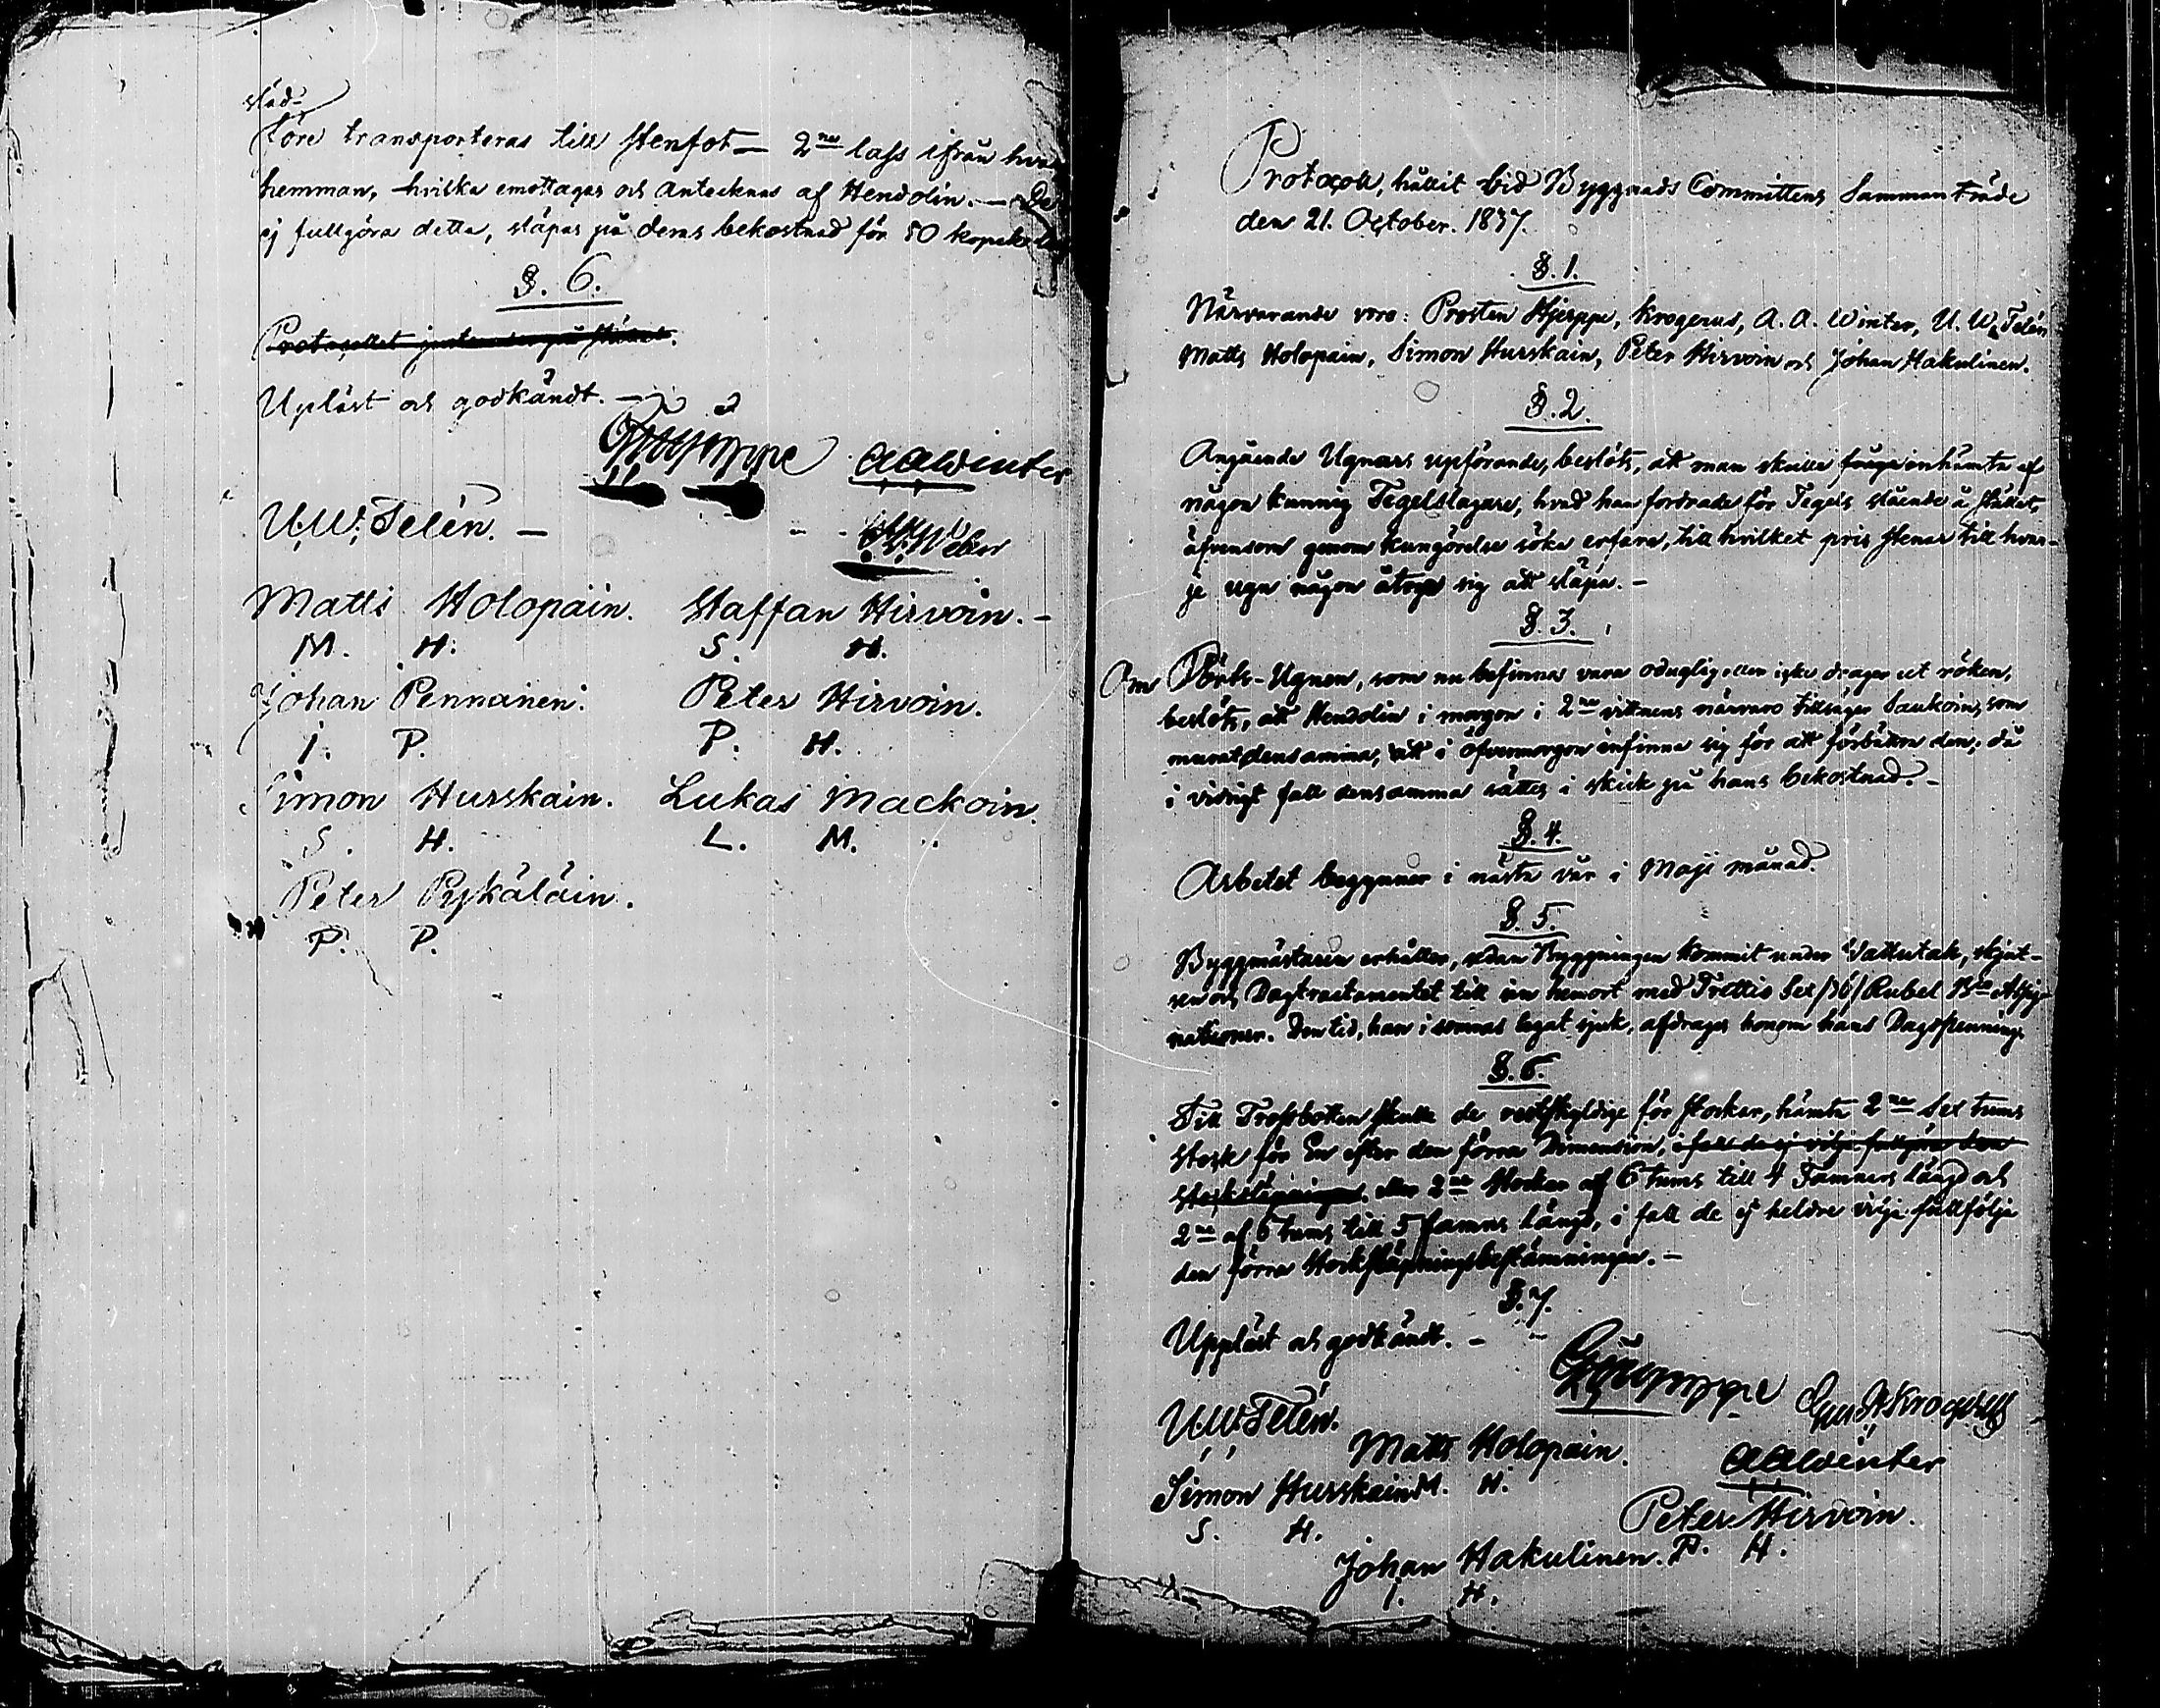 släd-
före transporteras till Stenfot — 2ne lass ifrån hvar
hemman, hvilka emottages och antecknas af Hendolin. — De
ej fullgöra detta, släpas på deras bekostnad för 50 kopek
§. 6.
Protocollet justerades på stället.
Upläst och godkändt. —
Hjerppe AAWinter
U.W. Telén. —
Weber
Matts Holopain. Staffan Hirvoin. —
M. H. S. H.
Johan Pennainen. Peter Hirvoin.
I. P. P. H.
Simon Hurskain. Lukas Mackoin.
S. H. L. M.
Peter Pykäläin.
P. P.
Protocoll, hållit vid Byggnads Committens Sammanträde
den 21. October. 1837.
§. 1.
Närvarande voro: Prosten Hjerppe, Krogerus, A. A. Winter, U. W. Telén
Matts Holopain, Simon Hurskain, Peter Hirvoin och Johan Hakulinen.
§. 2.
Angående Ugnars upförande, beslöts, att man skulle inhämta af
någon kunnig Tegelslagare, hvad han fordrade för Tegels slående å stället,
äfvensom genom kungörelse söka erfara, till hvilket pris stenar till hvar-
je ugn någon åtoge sig att släpa. —
§. 3.
Om Pörts-Ugnen, som nu befinnes vara oduglig, eller icke drager ut röken,
beslöts, att Hendolin i morgon i 2ne vittnens närvaro tillsäger Saukoin, som
murat densamma, att i öfvermorgon infinna sig för att förbättra den; då
i vidrigt fall densamma sättes i skick på hans bekostnad. —
§. 4.
Arbetet begynner i nästa vår i Maji månad.
§. 5.
Byggmästaren erhåller, sedan Byggningen kommit under Vattutak, skjut-
sen och Dagtractamentet till sin hemort med Trettio Sex /36/ Rubel Bco Assig-
nationer. Den tid, han i somras legat sjuk, afdrages honom hans Dagspenning.
§. 6.
Till Trossbotten skulle de restskyldige för stockar, hämta 2ne Sex tums
stock för En efter den förra Dimension, i fall de ej vilja fullgöra den
stocksläpningen, eller 2ne stockar af 6 tums till 4 Famnars längd och
2ne af 6 tums till 5 famns längd, i fall de ej heldre vilja fullfölja
den förra Stocksläpningsbestämningen. —
§. 7.
Uppläst och godkändt. —
Hjerppe Krogerus
U.W. Telén.
Matts Holopain. AAWinter
Simon Hurskain M. H.
S. H. Peter Hirvoin.
Johan Hakulinen. P. H.
I. H.